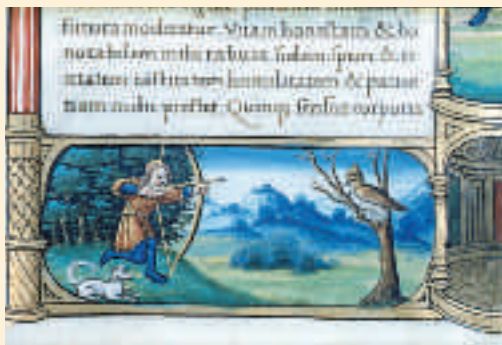 futura moderetur. Vitam honestam & ho
mihi tribuat fidem, spem & ca
ritatem castitatem humilitatem & patien
tiam mihi prestet. Quinqꝫ sensus corporis